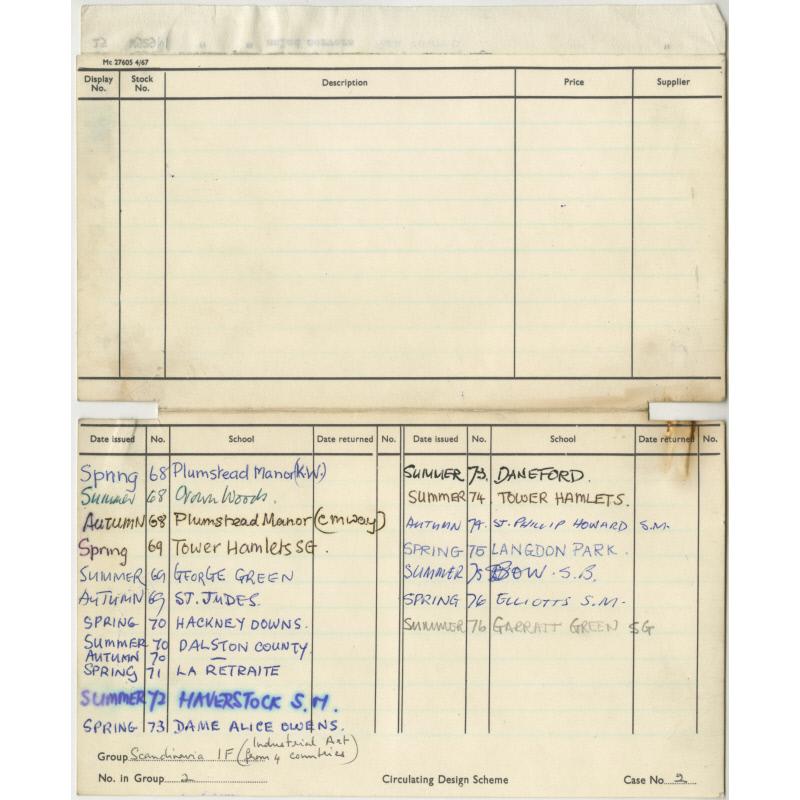 Mc 27605 4/67
Display No. Stock No. Description Price Supplier
Date issued No. School Date returned No. Date issued No. School Date returned No.
Spring 68 Plumstead Manor (K.W.)
Summer 68 Crown Woods.
AUTUMN 68 Plumstead Manor (cmway)
Spring 69 Tower Hamlets SG.
SUMMER 69 GEORGE GREEN
AUTUMN 69 ST. JUDES.
SPRING 70 HACKNEY DOWNS.
SUMMER 70 DALSTON COUNTY.
AUTUMN 70 —
SPRING 71 LA RETRAITE
SUMMER 72 HAVERSTOCK S.M.
SPRING 73 DAME ALICE OWENS.
SUMMER 73. DANEFORD.
SUMMER 74 TOWER HAMLETS.
AUTUMN 74. ST. PHILLIP HOWARD S.M.
SPRING 75 LANGDON PARK.
SUMMER 75 BOW. S.B.
SPRING 76 ELLIOTTS S.M.
SUMMER 76 GARRATT GREEN SG
Group Scandinavia IF (Industrial Art from 4 countries)
No. in Group 2 Circulating Design Scheme Case No 2